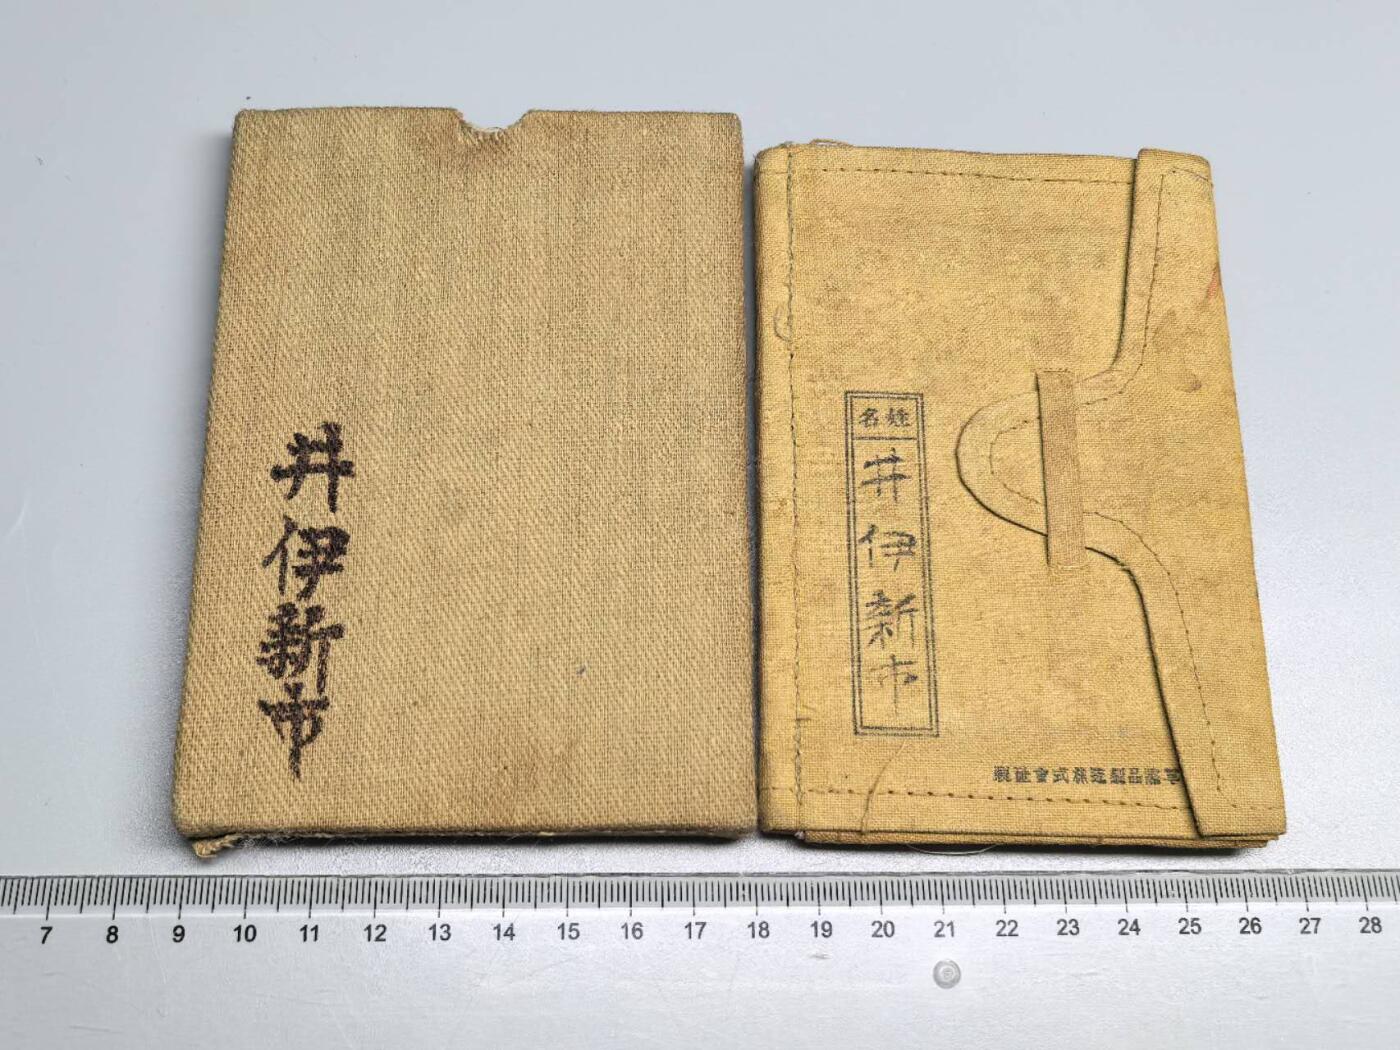 井伊新市
姓名
井伊新市
軍需品製造株式會社製
7 8 9 10 11 12 13 14 15 16 17 18 19 20 21 22 23 24 25 26 27 28